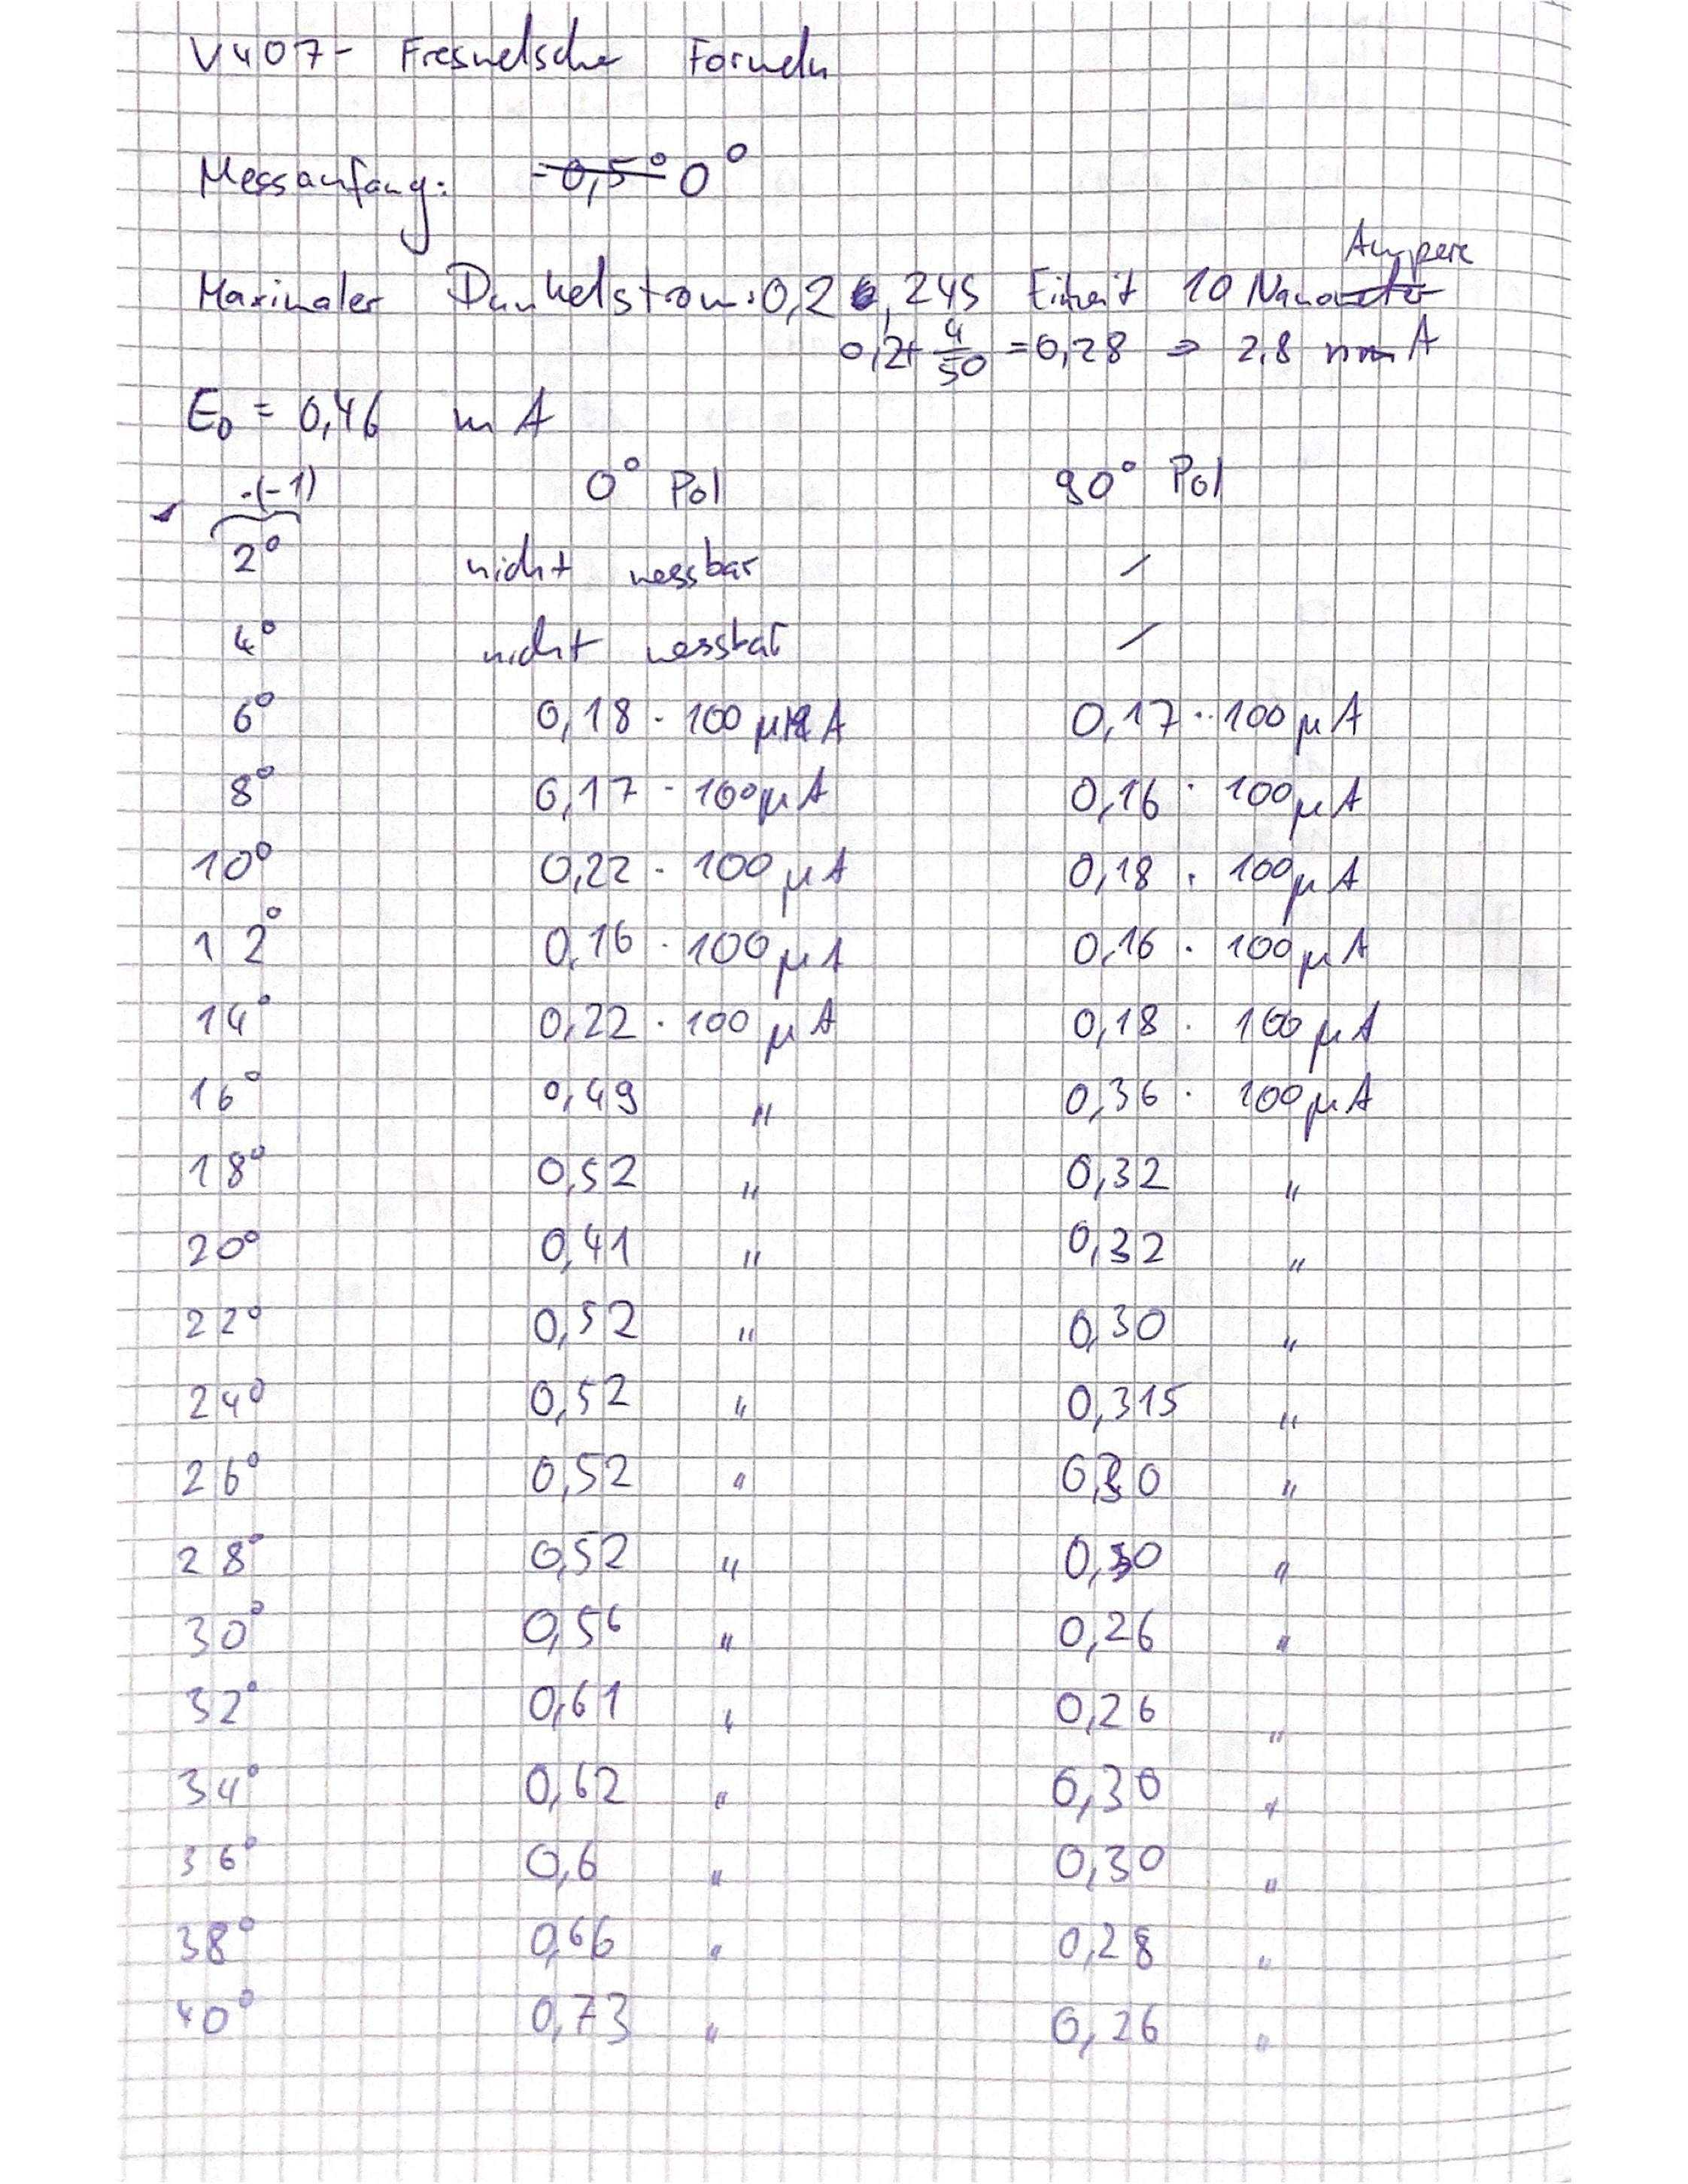 V407- Fresnelsche Formeln
Messanfang: 0°
Maximaler Dunkelstrom: 0,2 0,245 Einheit 10 Nano Ampere
0,2+ 4/50 = 0,28 ⇒ 2,8 A
E₀ = 0,46 mA
·(-1) 0° Pol 90° Pol
2° nicht messbar /
4° nicht messbar /
6° 0,18 · 100 μA 0,17 · 100 μA
8° 0,17 · 100 μA 0,16 · 100 μA
10° 0,22 · 100 μA 0,18 · 100 μA
12° 0,16 · 100 μA 0,16 · 100 μA
14° 0,22 · 100 μA 0,18 · 100 μA
16° 0,49 " 0,36 · 100 μA
18° 0,52 " 0,32 "
20° 0,41 " 0,32 "
22° 0,52 " 0,30 "
24° 0,52 " 0,315 "
26° 0,52 " 0,30 "
28° 0,52 " 0,30 "
30° 0,56 " 0,26 "
32° 0,61 " 0,26 "
34° 0,62 " 0,30 "
36° 0,6 " 0,30 "
38° 0,66 " 0,28 "
40° 0,73 " 0,26 "